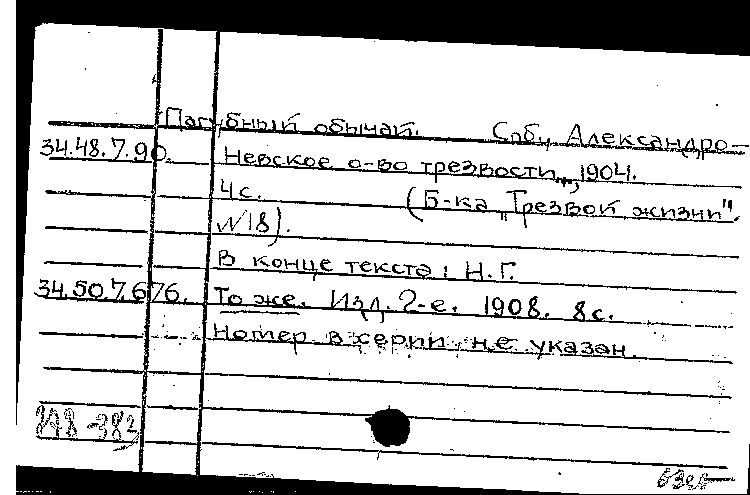 Пагубный обычай. Спб., Александро-
34.48.7.90. Невское о-во трезвости, 1904.
4с. (Б-ка "Трезвой жизни".
№18).
В конце текста: Н.Г.
34.50.7.676. То же. Изд. 2-е. 1908. 8с.
Номер в серии не указан.